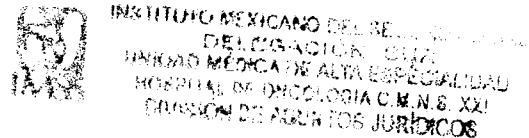 INSTITUTO MEXICANO DEL
DELEGACIÓN
UNIDAD MÉDICA DE ALTA ESPECIALIDAD
HOSPITAL DE ONCOLOGIA C.M.N.S. XXI
DIVISIÓN DE ASUNTOS JURÍDICOS
IMSS